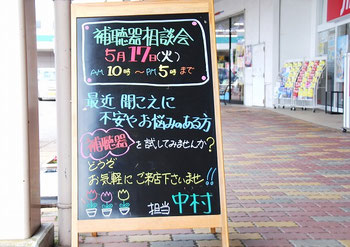 補聴器相談会
5月17日(火)
AM 10時〜PM 5時まで
最近 聞こえに
不安やお悩みのある方
補聴器を試してみませんか?
どうぞ
お気軽にご来店下さいませ!!
担当 中村